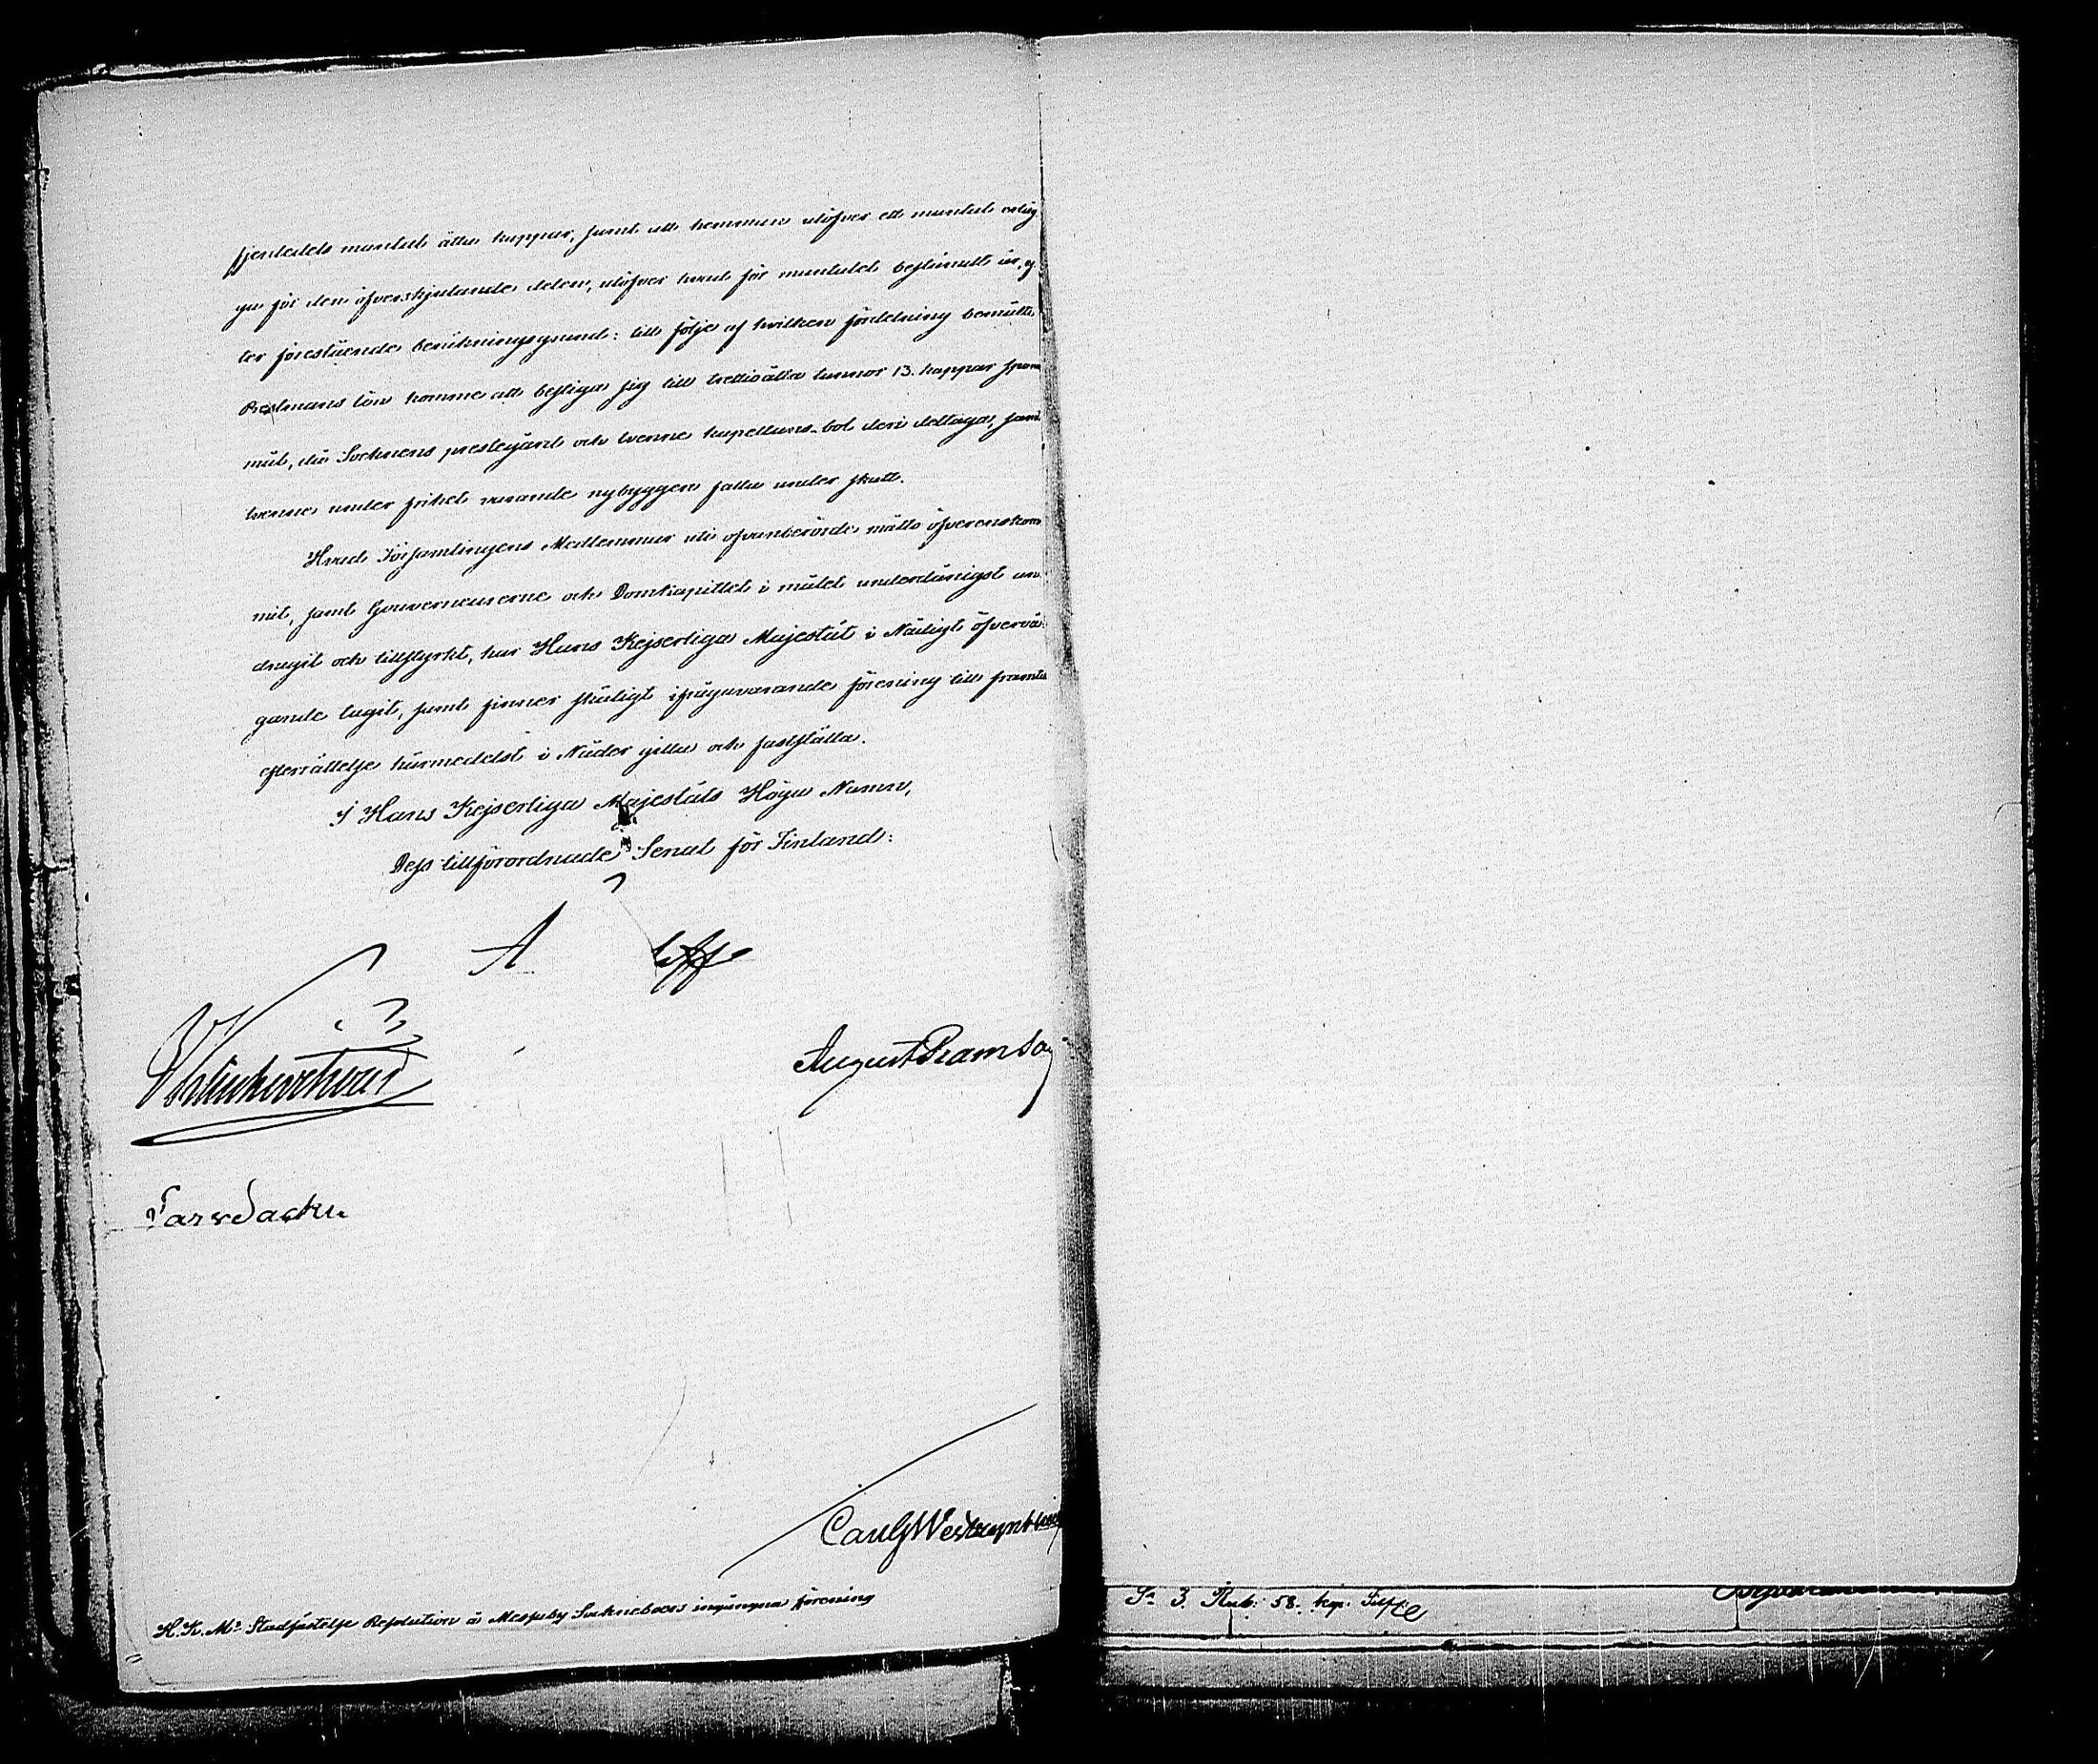 fjendedels mantal åtta kappar, samt att hemman utöfver ett mantal erläg-
ga för den öfverskjutande delen, utöfver hvad för mantalet bestämdt är, ef-
ter förestående beräkningsgrund: till följe af hvilken fördelning bemälte
Prestmans lön komme att bestiga sig till trettioåtta tunnor 13. kappar span-
mål, då Socknens prestegård och tvenne kapellans-bol deri deltaga, samt
tvenne under frihet varande nybyggen falla under skatt.
Hvad Församlingens Medlemmar uti ofvanberörde måtto öfverenskom-
mit, samt Gouverneurerne och Domkapitlet i målet underdånigst an-
dragit och tillstyrkt, har Hans Kejserliga Majestät i Nådigt öfvervä-
gande tagit, samt finner skäligt ifrågavarande förening till framtida
efterrättelse härmedelst i Nåder gilla och fastställa.
I Hans Kejserliga Majestäts Höga Namn,
Dess tillförordnade Senat för Finland:
August Ramsay
Lars Sackl
H. K. Ms Stadfästelse Resolution å Messuby Sockneboers ingångna förening
3 Rub: 58.